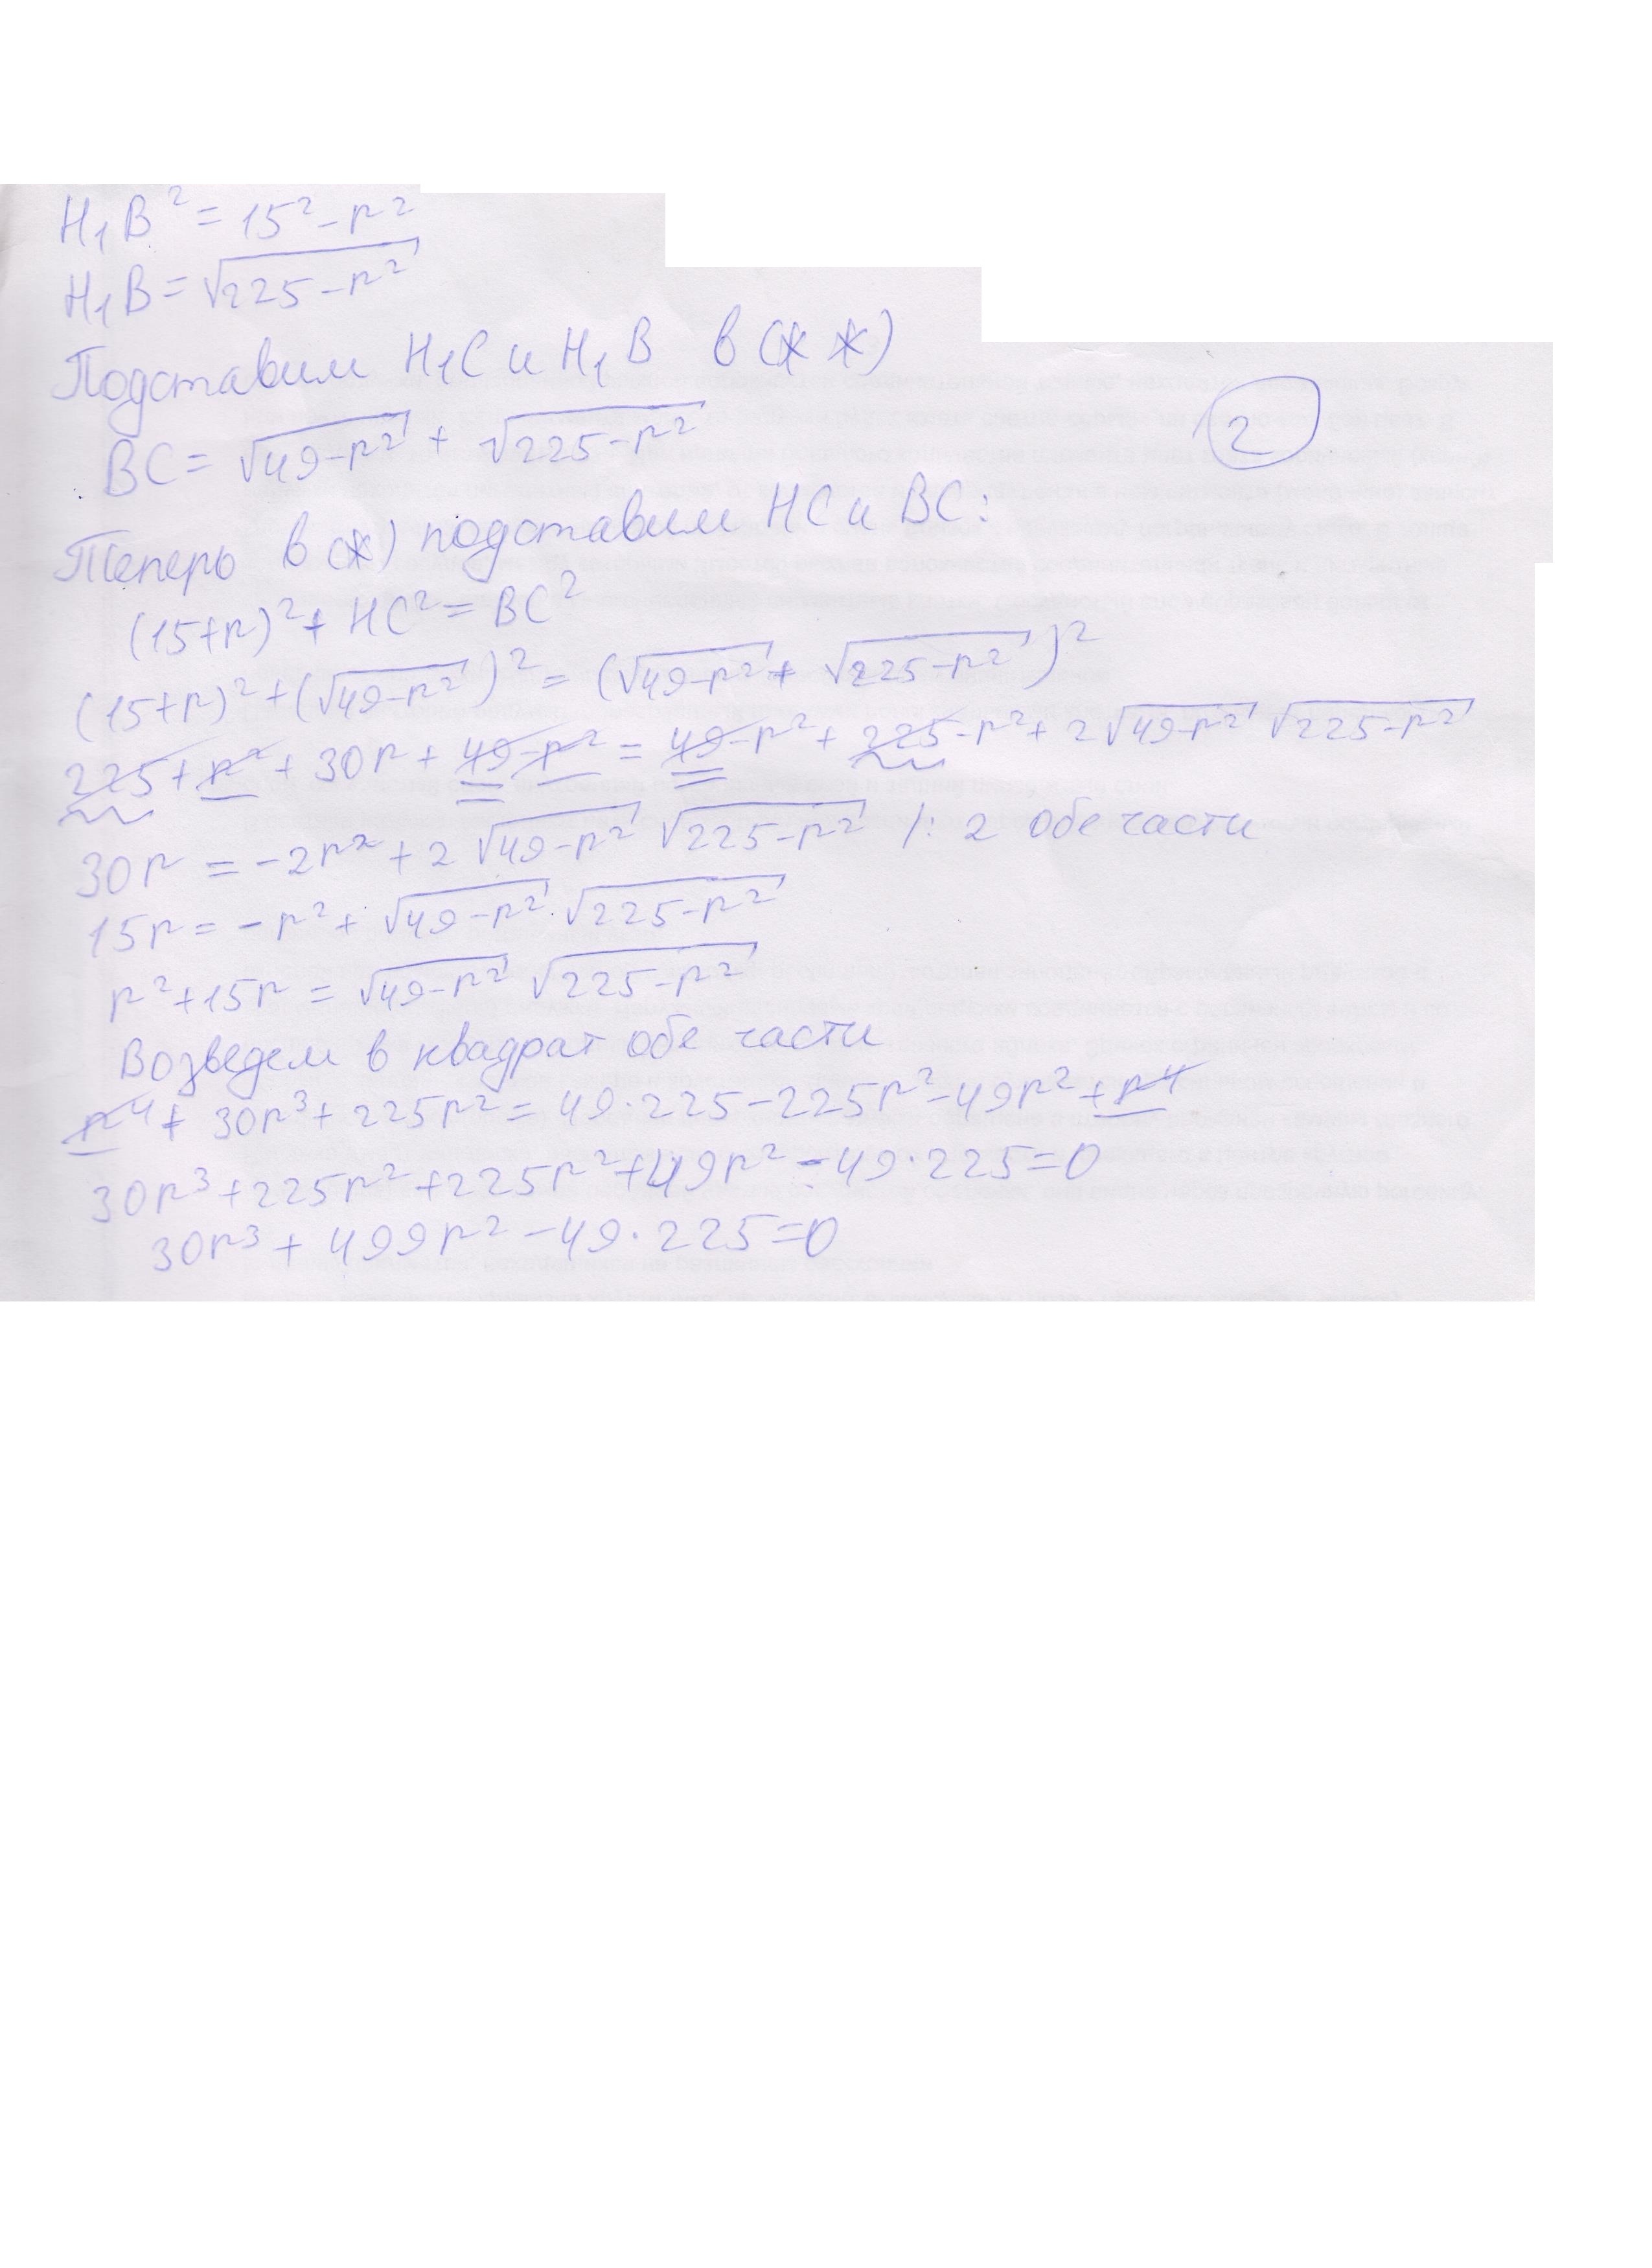 H₁B² = 15² - r²
H₁B = √(225 - r²)
Подставим H₁C и H₁B в (**)
BC = √(49 - r²) + √(225 - r²)
2
Теперь в (*) подставим HC и BC:
(15+r)² + HC² = BC²
(15+r)² + (√(49-r²))² = (√(49-r²) + √(225-r²))²
225 + r² + 30r + 49 - r² = 49 - r² + 225 - r² + 2√(49-r²) √(225-r²)
30r = -2r² + 2√(49-r²) √(225-r²) /: 2 обе части
15r = -r² + √(49-r²) · √(225-r²)
r² + 15r = √(49-r²) √(225-r²)
Возведем в квадрат обе части
r⁴ + 30r³ + 225r² = 49·225 - 225r² - 49r² + r⁴
30r³ + 225r² + 225r² + 49r² - 49·225 = 0
30r³ + 499r² - 49·225 = 0